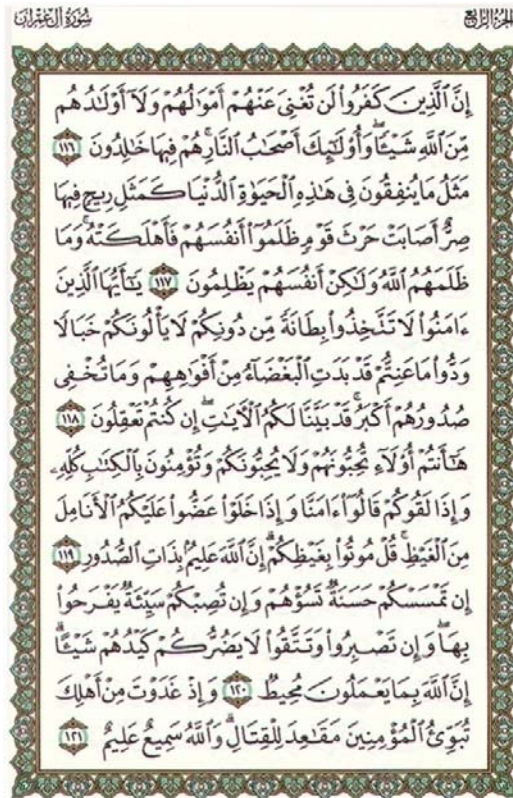 الجزء الرابع
سورة آل عمران
إِنَّ ٱلَّذِينَ كَفَرُوا۟ لَن تُغْنِىَ عَنْهُمْ أَمْوَٰلُهُمْ وَلَآ أَوْلَٰدُهُم
مِّنَ ٱللَّهِ شَيْـًٔا ۖ وَأُو۟لَٰٓئِكَ أَصْحَٰبُ ٱلنَّارِ ۚ هُمْ فِيهَا خَٰلِدُونَ ١١٦
مَثَلُ مَا يُنفِقُونَ فِى هَٰذِهِ ٱلْحَيَوٰةِ ٱلدُّنْيَا كَمَثَلِ رِيحٍ فِيهَا
صِرٌّ أَصَابَتْ حَرْثَ قَوْمٍ ظَلَمُوٓا۟ أَنفُسَهُمْ فَأَهْلَكَتْهُ ۚ وَمَا
ظَلَمَهُمُ ٱللَّهُ وَلَٰكِنْ أَنفُسَهُمْ يَظْلِمُونَ ١١٧ يَٰٓأَيُّهَا ٱلَّذِينَ
ءَامَنُوا۟ لَا تَتَّخِذُوا۟ بِطَانَةً مِّن دُونِكُمْ لَا يَأْلُونَكُمْ خَبَالًا
وَدُّوا۟ مَا عَنِتُّمْ قَدْ بَدَتِ ٱلْبَغْضَآءُ مِنْ أَفْوَٰهِهِمْ وَمَا تُخْفِى
صُدُورُهُمْ أَكْبَرُ ۚ قَدْ بَيَّنَّا لَكُمُ ٱلْءَايَٰتِ ۖ إِن كُنتُمْ تَعْقِلُونَ ١١٨
هَٰٓأَنتُمْ أُو۟لَآءِ تُحِبُّونَهُمْ وَلَا يُحِبُّونَكُمْ وَتُؤْمِنُونَ بِٱلْكِتَٰبِ كُلِّهِۦ
وَإِذَا لَقُوكُمْ قَالُوٓا۟ ءَامَنَّا وَإِذَا خَلَوْا۟ عَضُّوا۟ عَلَيْكُمُ ٱلْأَنَامِلَ
مِنَ ٱلْغَيْظِ ۚ قُلْ مُوتُوا۟ بِغَيْظِكُمْ ۗ إِنَّ ٱللَّهَ عَلِيمٌۢ بِذَاتِ ٱلصُّدُورِ ١١٩
إِن تَمْسَسْكُمْ حَسَنَةٌ تَسُؤْهُمْ وَإِن تُصِبْكُمْ سَيِّئَةٌ يَفْرَحُوا۟
بِهَا ۖ وَإِن تَصْبِرُوا۟ وَتَتَّقُوا۟ لَا يَضُرُّكُمْ كَيْدُهُمْ شَيْـًٔا ۗ
إِنَّ ٱللَّهَ بِمَا يَعْمَلُونَ مُحِيطٌ ١٢٠ وَإِذْ غَدَوْتَ مِنْ أَهْلِكَ
تُبَوِّئُ ٱلْمُؤْمِنِينَ مَقَٰعِدَ لِلْقِتَالِ ۗ وَٱللَّهُ سَمِيعٌ عَلِيمٌ ١٢١